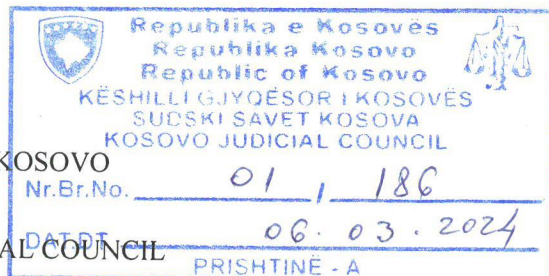 Republika e Kosovës
Republika Kosovo
Republic of Kosovo
KËSHILLI GJYQËSOR I KOSOVËS
SUDSKI SAVET KOSOVA
KOSOVO JUDICIAL COUNCIL
KOSOVO
Nr.Br.No. 01 / 186
DAT.DT. 06. 03. 2024
AL COUNCIL
PRISHTINË - A